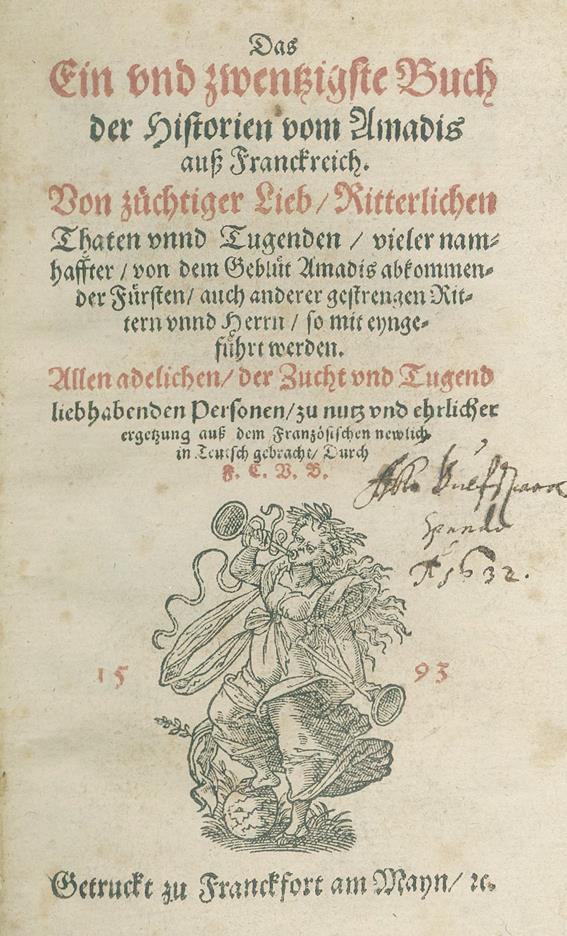 Das
Ein vnd zwentzigste Buch
der Historien vom Amadis
auß Franckreich.
Von züchtiger Lieb / Ritterlichen
Thaten vnnd Tugenden / vieler nam-
haffter / von dem Geblüt Amadis abkommen-
der Fürsten / auch anderer gestrengen Rit-
tern vnnd Herrn / so mit eynge-
führt werden.
Allen adelichen / der Zucht vnd Tugend
liebhabenden Personen / zu nutz vnd ehrlicher
ergetzung auß dem Französischen newlich
in Teutsch gebracht / Durch
F. C. V. B.
1632.
15 93
Getruckt zu Franckfort am Mayn / ꝛc.